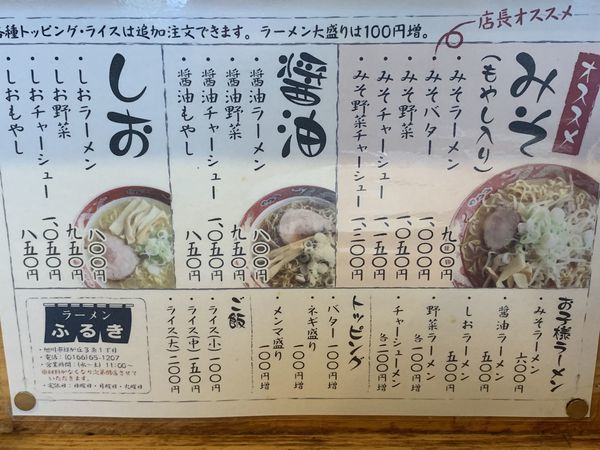 各種トッピング・ライスは追加注文できます。ラーメン大盛りは100円増。
店長オススメ
オススメ
みそ
(もやし入り)
・みそラーメン 九〇〇円
・みそバター 一〇〇〇円
・みそ野菜 一〇五〇円
・みそチャーシュー
・みそ野菜チャーシュー
醤油
・醤油ラーメン 八〇〇円
・醤油野菜 九五〇円
・醤油チャーシュー 一〇五〇円
・醤油もやし 八五〇円
しお
・しおラーメン 八〇〇円
・しお野菜 九五〇円
・しおチャーシュー 一〇五〇円
・しおもやし 八五〇円
お子様ラーメン
・みそラーメン 六〇〇円
・醤油ラーメン 五〇〇円
・しおラーメン 五〇〇円
・野菜ラーメン
・チャーシューメン
トッピング
・バター 一〇〇円増
・ネギ盛り 一〇〇円増
・メンマ盛り 一〇〇円増
ご飯
・ライス(小) 一〇〇円
・ライス(中) 一五〇円
・ライス(大) 二〇〇円
ラーメン
ふるき
・旭川市緑が丘3条1丁目
・電話:(0166)65-1207
・営業時間:(水〜土) 11:00〜
※材料がなくなり次第閉店させて
いただきます。
・定休日:日曜日・月曜日・火曜日